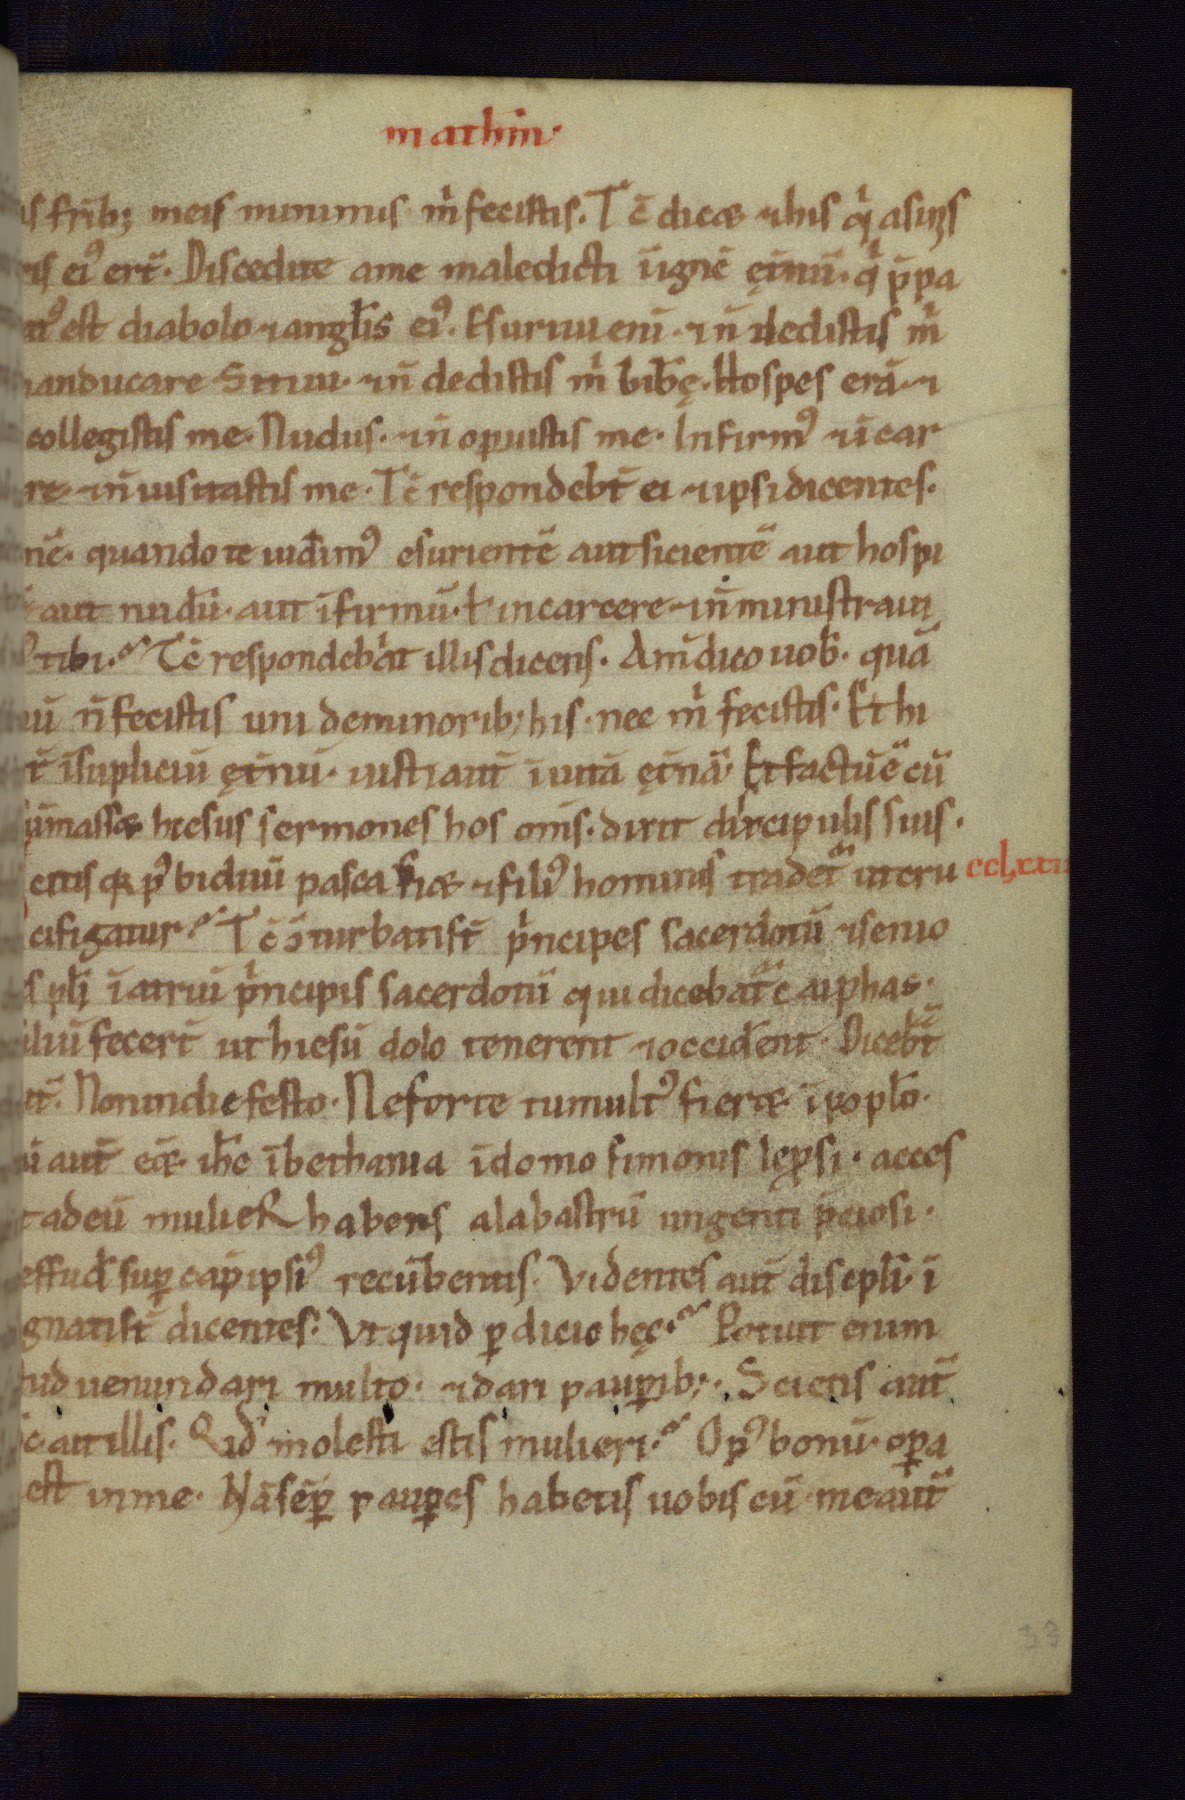 mathm·
is frib; meis minimis m fecistis. Tc̄ dicæ ⁊ his q̇ asinis
eis ei᾽ ert̄. Discedite ame maledicti ī ignē ęt̄nū· q̇ p̄pa
at᾽ est diabolo ⁊ anglis ei᾽. Esuriui eni ⁊ n̄ dedistis m
anducare Sitiui· ⁊ n̄ dedistis m bibę. Hospes erā· ⁊
collegistis me. Nudus· ⁊ n̄ opuistis me. Infirm᾽ ⁊ ī car
re· ⁊ n̄ uisitastis me. Tc̄ respondebt̄ ei ⁊ ipsi dicentes.
nē. quando te uidim᾽ esurientē aut sicientē aut hospi
aut nudū· aut īfirmū· ł in carcere· ⁊ n̄ ministraui
tibi. Tc̄ respondebat illis dicens. Am̄ dico uob. quā
ū n̄ fecistis uni deminorib; his· nec m fecistis. Et hi
t̄ īsupliciū ęt̄nū· iusti aut̄ ī uitā ęt̄nā. Et factūē cū
ūmassæ hiesus sermones hos om̄s. dixit discipulis suis.
citis qa p᾽ biduū pasca fiæ ⁊ fili᾽ hominis tradet᾽ ut cru
cifigatur. Tc̄ ɔ̄turbatist̄ p̄ncipes sacerdotū ⁊ senio
s pli ī atriū p̄ncipis sacerdotū qui dicebat᾽ caiphas.
iliū fecert̄ ut hiesū dolo tenerent ⁊ occident. Dicebt̄
ut̄. Non in die festo. Ne forte tumult᾽ fieræ ī poplo.
ū aut̄ eēt ihc ībethania ī domo simonis lepsi. acces
t adeū mulieR habens alabastrū ungenti pciosi.
effud sup cap ipsi᾽ recūbentis. Videntes aut̄ discpli· ī
gnatist̄ dicentes. Vt quid pdicio hęc. Potuit enim
tud uenundari multo· ⁊ dari paupib;. Scietis aut̄
c· ait illis. Qid molesti estis mulieri. Op᾽ bonū· opa
est in me. Nā semp paupes habetis uobiscū· me aut̄
33